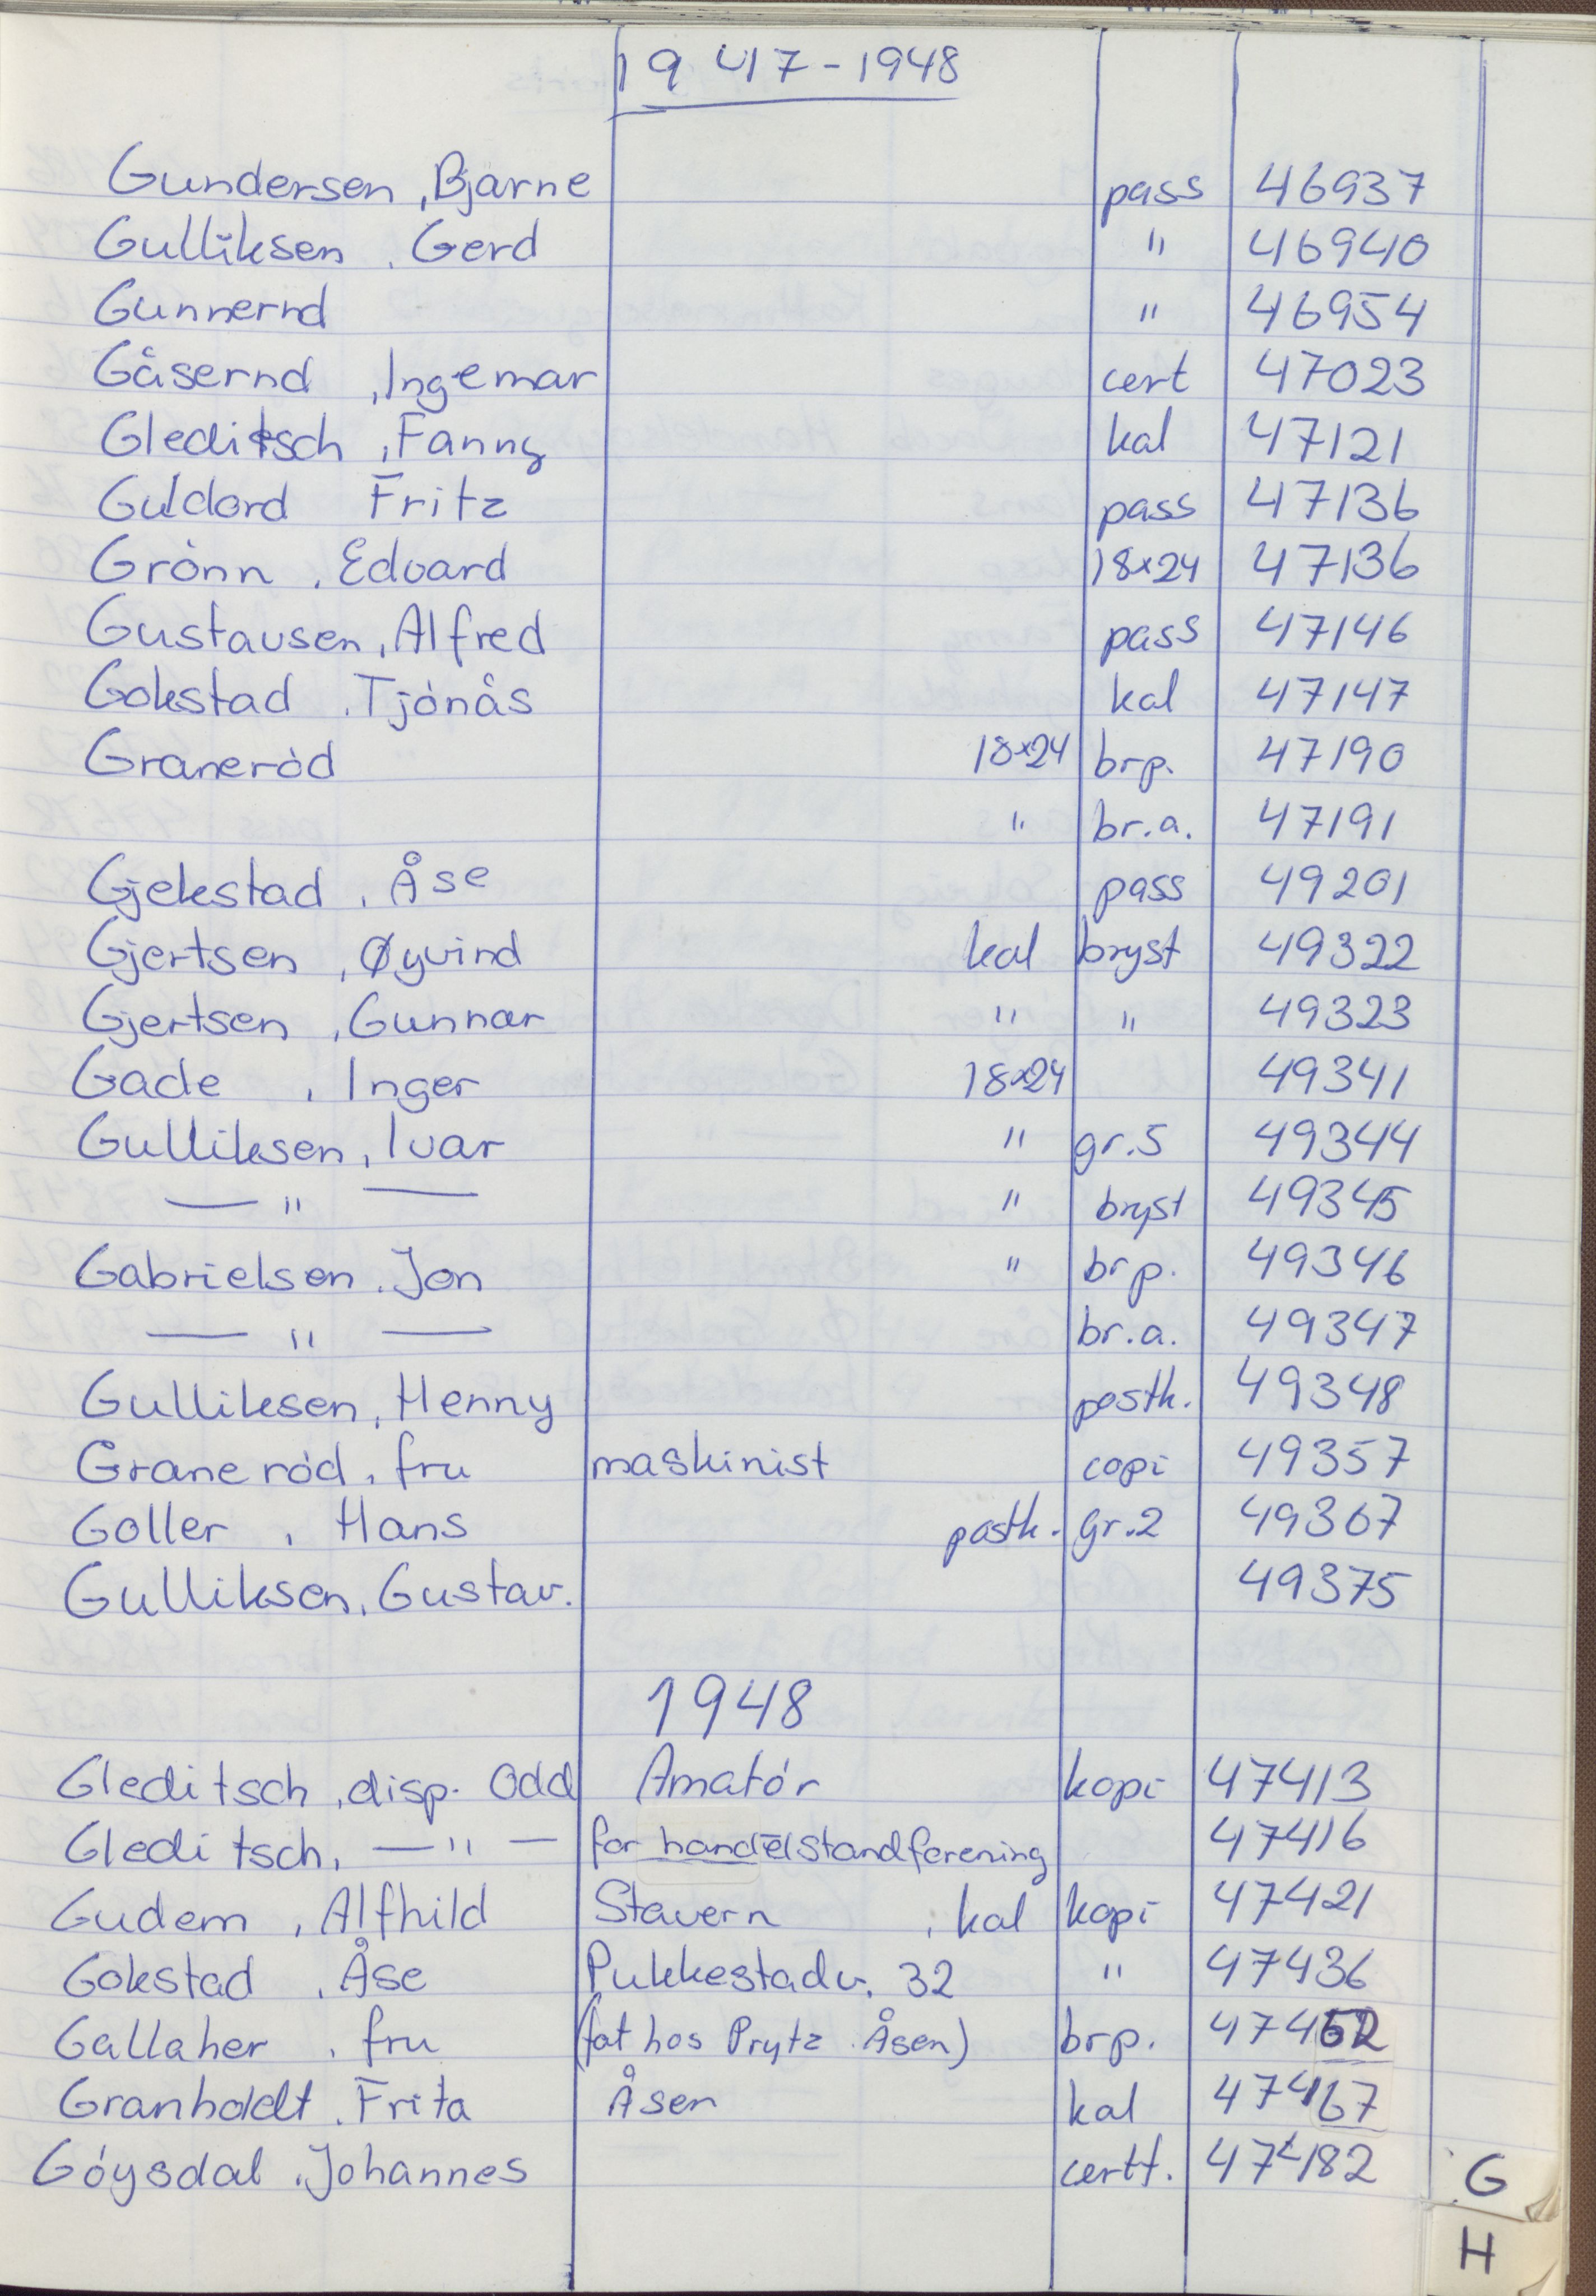 1947-1948
Gundersen, Bjarne pass 46937
Gulliksen, Gerd " 46940
Gunnernd " 46954
Gåsernd, Ingemar cert 47023
Gleditsch, Fanny kal 47121
Guldord Fritz pass 47136
Grònn, Edvard 18x24 47136
Gustavsen, Alfred pass 47146
Gokstad, Tjónås kal 47147
Graneròd 18x24 brp. 47190
" br.a. 47191
Gjekstad, Åse pass 49201
Gjertsen, Øyvind kal bryst 49322
Gjertsen, Gunnar " " 49323
Gade, Inger 18x24 49341
Gulliksen, Ivar " gr.5 49344
— " — " bryst 49345
Gabrielsen, Jon " brp. 49346
— " — br.a. 49347
Gulliksen, Henny postk. 49348
Graneród, fru maskinist copi 49357
Goller, Hans postk. gr.2 49367
Gulliksen, Gustav. 49375
1948
Gleditsch, disp. Odd Amatór kopi 47413
Gleditsch, — " — for handelstandforening 47416
Gudem, Alfhild Stavern, kal kopi 47421
Gokstad, Åse Pukkestadv. 32 " 47436
Gallaher, fru (fat hos Prytz Åsen) brp. 47452
Granholdt, Frita Åsen kal 47467
Góysdal, Johannes certt. 47482
G
H